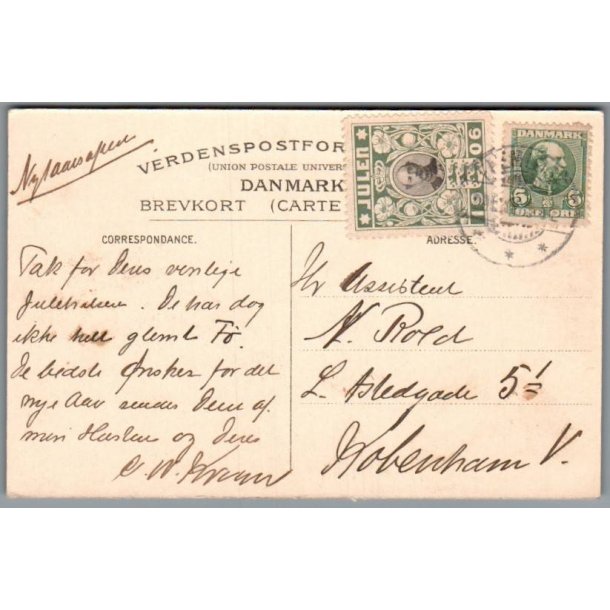 Nytaarsaften
VERDENSPOSTFOR
(UNION POSTALE UNIVER
DANMARK
BREVKORT (CARTE
JULEN 1906
DANMARK
5 5
ØRE ØRE
CORRESPONDANCE.
ADRESSE.
Tak for Deres venlige
Julehilsen. De har dog
ikke helt glemt Fø.
De bedste Ønsker for det
nye Aar sendes Dem af
min Husbond og Deres
Hr Assistent
N. Rold
L. Istedgade 5 1/2
København V.